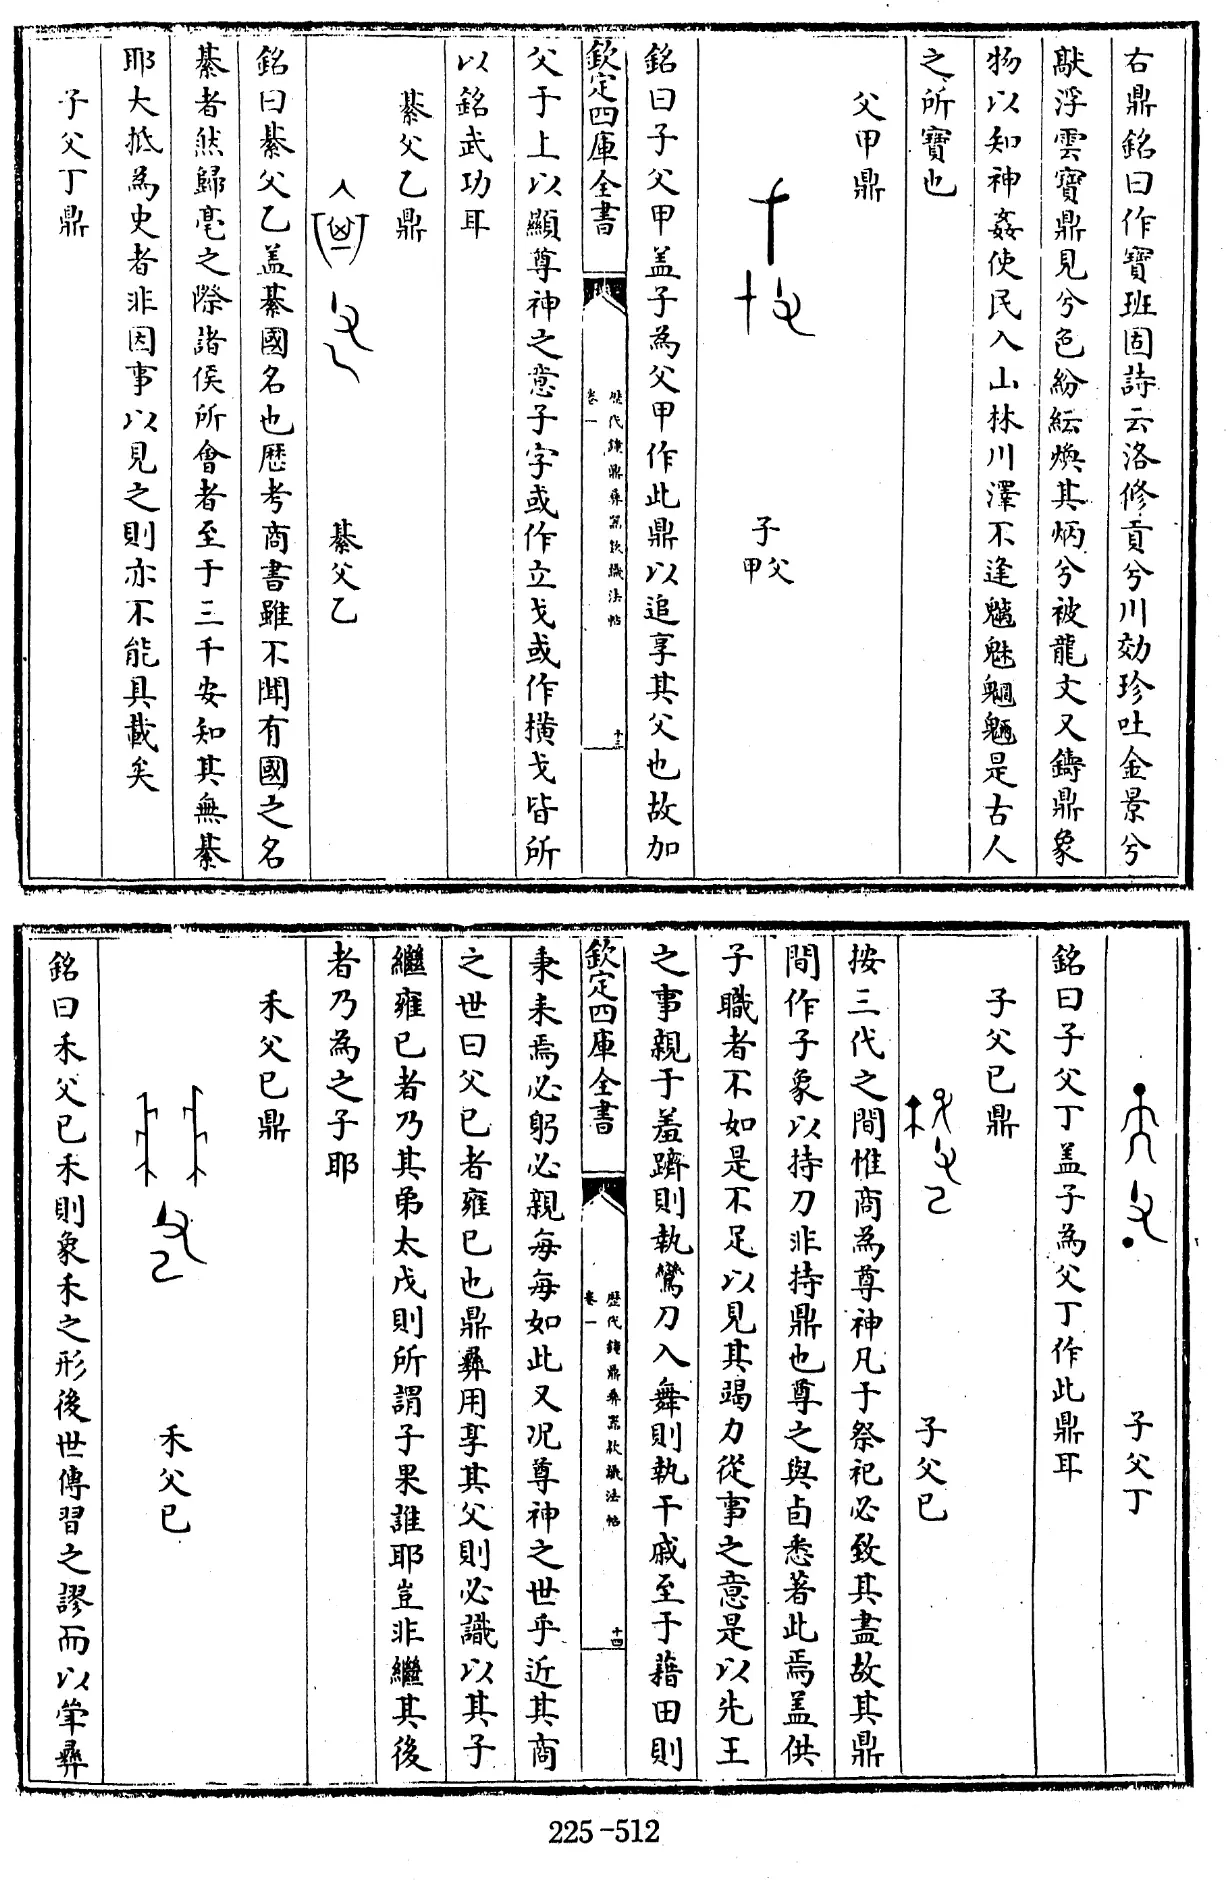 右鼎銘曰作寶班固詩云洛修貢兮川効珍吐金景兮
歊浮雲寶鼎見兮色紛紜煥其炳兮被龍文又鑄鼎象
物以知神姦使民入山林川澤不逢魑魅魍魎是古人
之所寶也
父甲鼎
子
父甲
銘曰子父甲盖子為父甲作此鼎以追享其父也故加
欽定四庫全書
歴代鐘鼎彝器款識法帖
卷一
十三
父于上以顯尊神之意子字或作立戈或作橫戈皆所
以銘武功耳
綦父乙鼎
綦父乙
銘曰綦父乙盖綦國名也歴考商書雖不聞有國之名
綦者然歸亳之際諸侯所會者至于三千安知其無綦
耶大抵為史者非因事以見之則亦不能具載矣
子父丁鼎
子父丁
銘曰子父丁盖子為父丁作此鼎耳
子父己鼎
子父己
按三代之間惟商為尊神凡于祭祀必致其盡故其鼎
間作子象以持刀非持鼎也尊之與卣悉著此焉盖供
子職者不如是不足以見其竭力從事之意是以先王
之事親于羞躋則執鸞刀入舞則執干戚至于藉田則
欽定四庫全書
歴代鐘鼎彝器款識法帖
卷一
十四
秉耒焉必躬必親每每如此又况尊神之世乎近其商
之世曰父己者雍己也鼎彝用享其父則必識以其子
繼雍己者乃其弟太戊則所謂子果誰耶豈非繼其後
者乃為之子耶
禾父己鼎
禾父己
銘曰禾父己禾則象禾之形後世傳習之謬而以犖彝
225-512